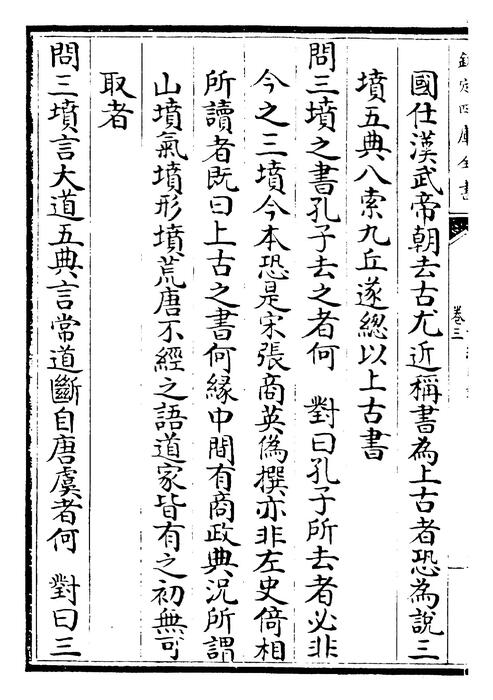 欽定四庫全書
卷三
國仕漢武帝朝去古尤近稱書為上古者恐為說三
墳五典八索九丘遂總以上古書
問三墳之書孔子去之者何 對曰孔子所去者必非
今之三墳今本恐是宋張商英偽撰亦非左史倚相
所讀者既曰上古之書何緣中間有商政典況所謂
山墳氣墳形墳荒唐不經之語道家皆有之初無可
取者
問三墳言大道五典言常道斷自唐虞者何 對曰三